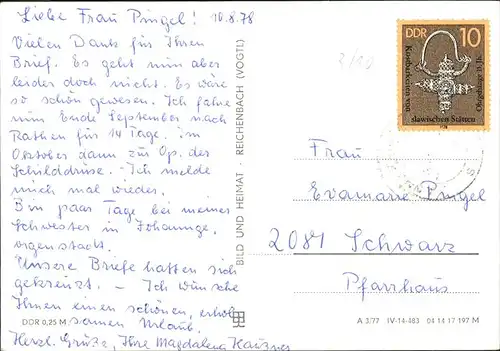 Liebe Frau Pingel! 10.8.78
Vielen Dank für Ihren
Brief. Es geht nun aber
leider doch nicht. Es wäre
so schön gewesen. Ich fahre
nun Ende September nach
Rathen für 14 Tage. im
Oktober dann zur Op. der
Schilddrüse. Ich melde
mich mal wieder.
Bin paar Tage bei meiner
Schwester in Johannge-
orgenstadt.
Unsere Briefe hatten sich
gekreuzt. - Ich wünsche
Ihnen einen schönen, erhol
samen Urlaub.
Herzl. Grüße, Ihre Magdalena
DDR 0,25 M
BILD UND HEIMAT · REICHENBACH (VOGTL)
DDR 10
Kostbarkeiten von
slawischen Stätten
Ohrgehänge 11. Jh.
1978
Frau
Evamarie Pingel
2081 Schwarz
Pfarrhaus
A 3/77 IV-14-483 04 14 17 197 M